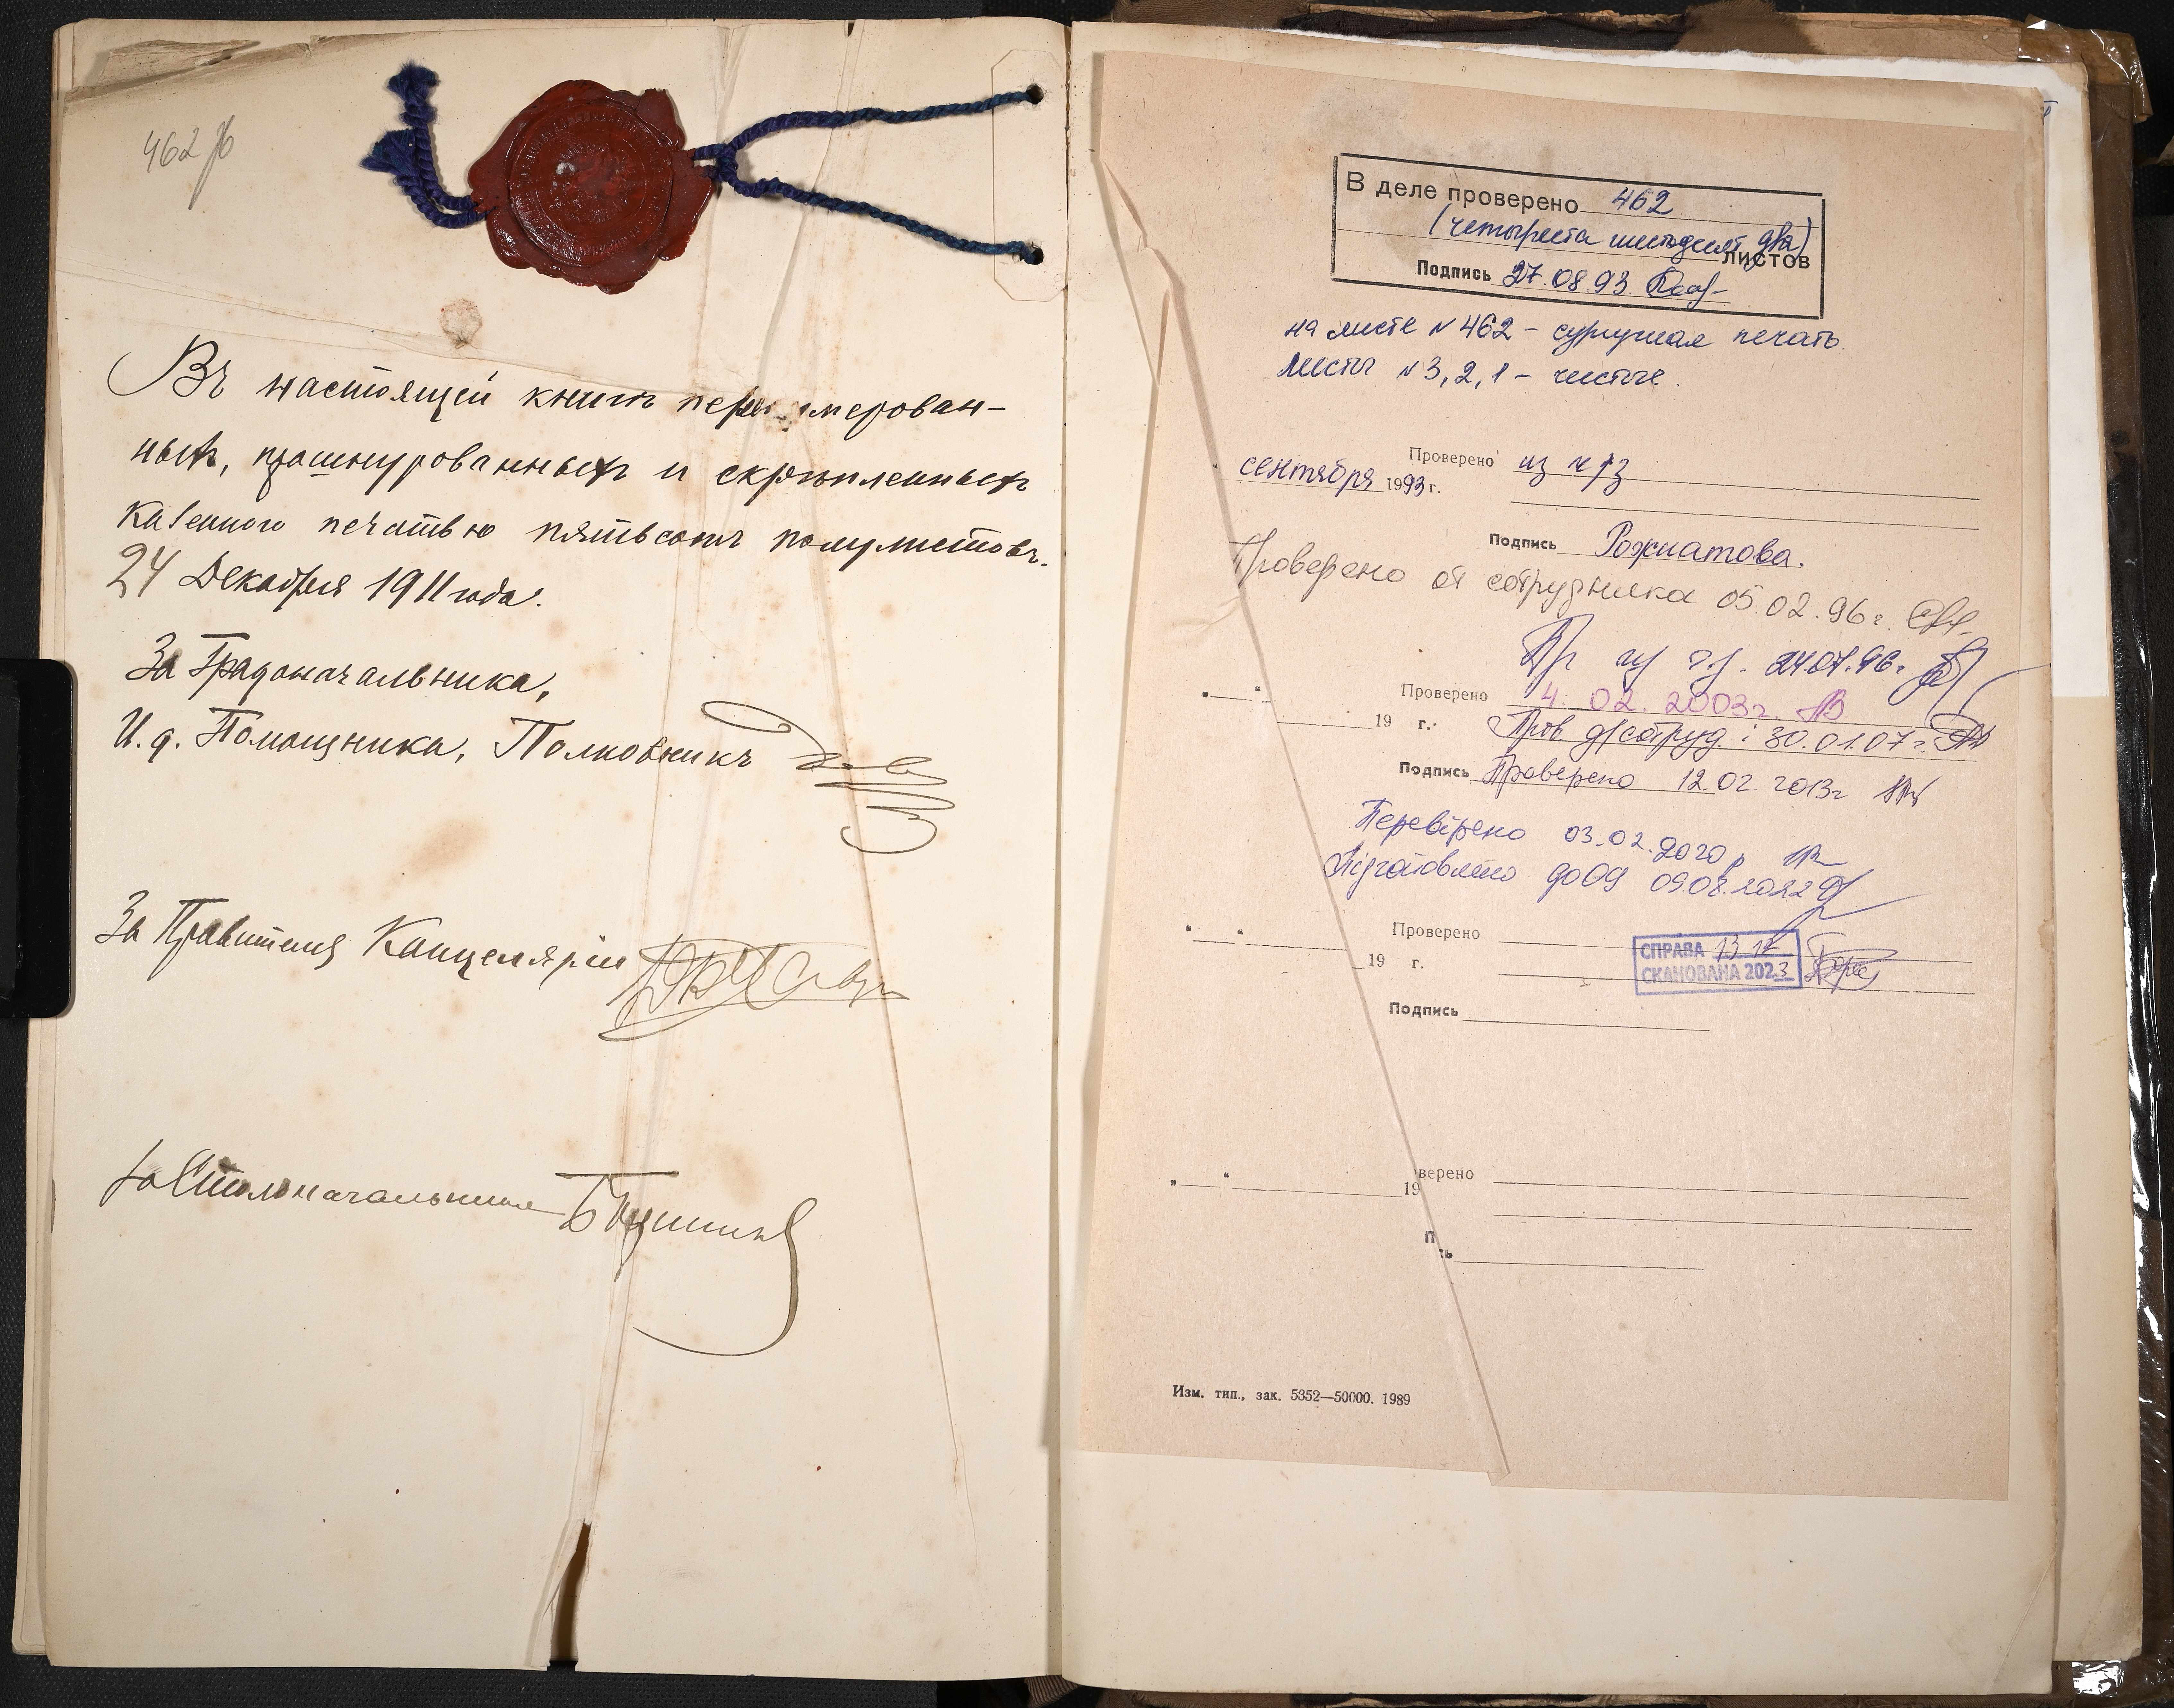 462
Въ настоящей книгѣ перенумерован-
ныхъ, прошнурованныхъ и скрѣпленныхъ
казенною печатью пятьсотъ полулистовъ.
24 Декабря 1911 года.
За Градоначальника,
И. д. Помощника, Полковникъ
За Правителя Канцеляріи
За Столоначальника
В деле проверено 462
(четыреста шестьдесят два)
листов
Подпись 27.08.93.
на листе № 462 - сургучная печать.
Листы № 3, 2, 1 - чистые.
Проверено из ч/з
сентября 1993 г.
Подпись
Проверено от сотрудника 05.02.96 г.
Пр из ч/з. 24.07.96 г.
„ “ Проверено 4. 02. 2003 г.
19 г. Пров. от сотруд. 30.01.07 г.
Подпись Проверено 12.02 2013 г
Перевірено 03.02.2020 р
Підготовлено до 09.08.2022
„ “ Проверено
19 г.
СПРАВА
СКАНОВАНА 2023
Подпись
„ “ верено
19
П сь
Изм. тип., зак. 5352—50000. 1989